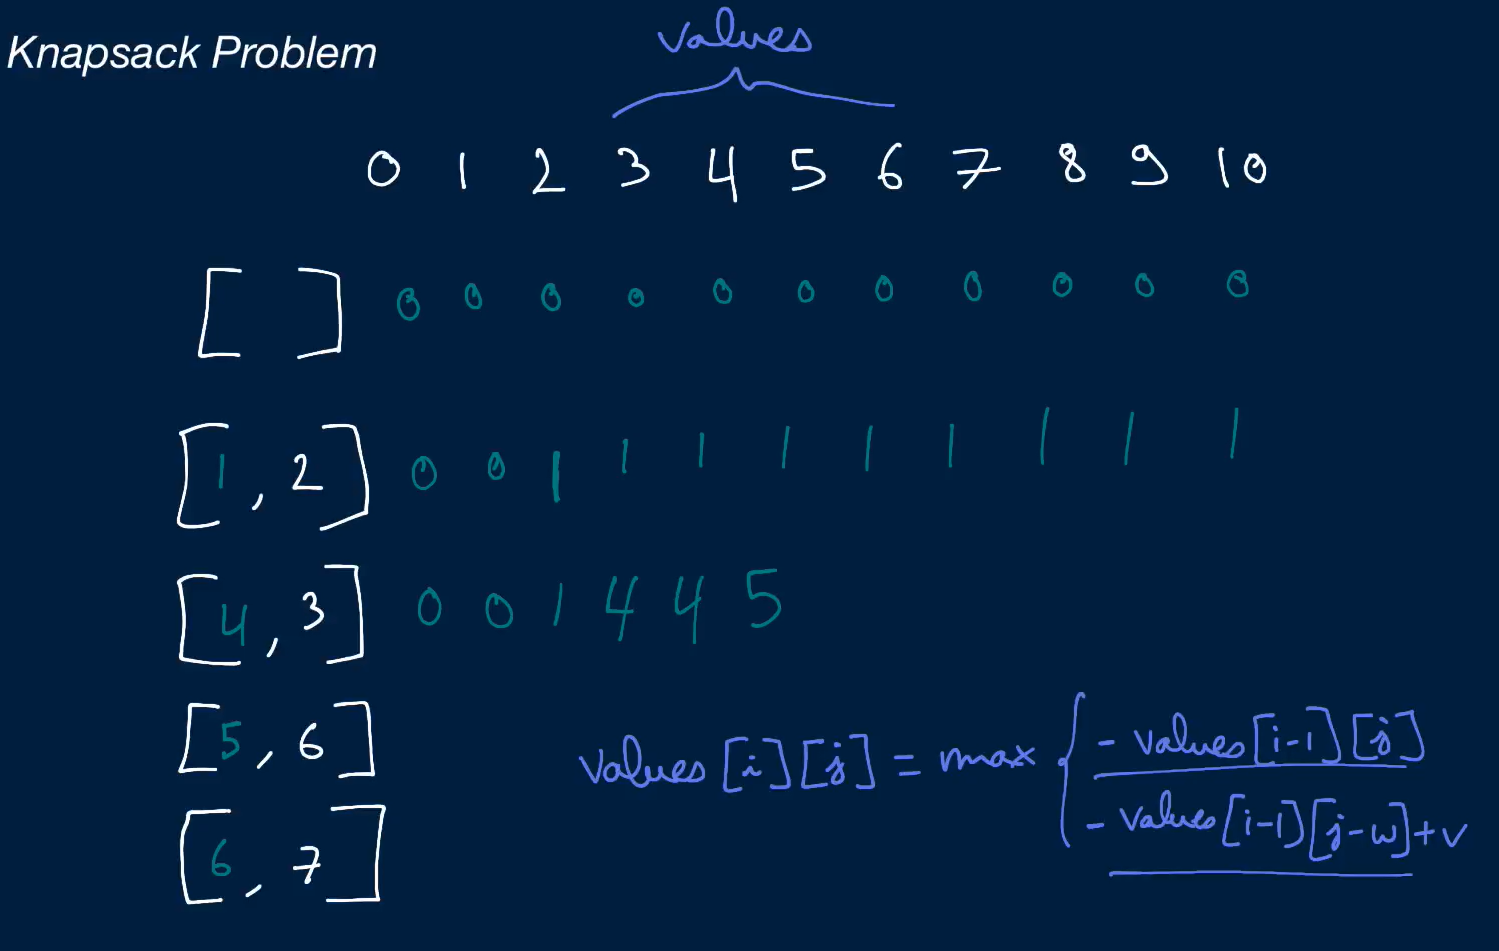 values
Knapsack Problem
0 1 2 3 4 5 6 7 8 9 10
[ ] 0 0 0 0 0 0 0 0 0 0 0
[1, 2] 0 0 1 1 1 1 1 1 1 1 1
[4, 3] 0 0 1 4 4 5
[5, 6]
values[i][j] = max { - values[i-1][j]
- values[i-1][j-w]+v
[6, 7]